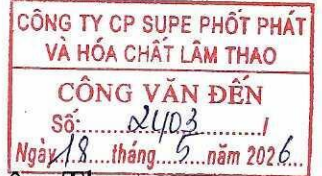 CÔNG TY CP SUPE PHỐT PHÁT
VÀ HÓA CHẤT LÂM THAO
CÔNG VĂN ĐẾN
Số:.......2403........./
Ngày.18....tháng...5...năm 2026...